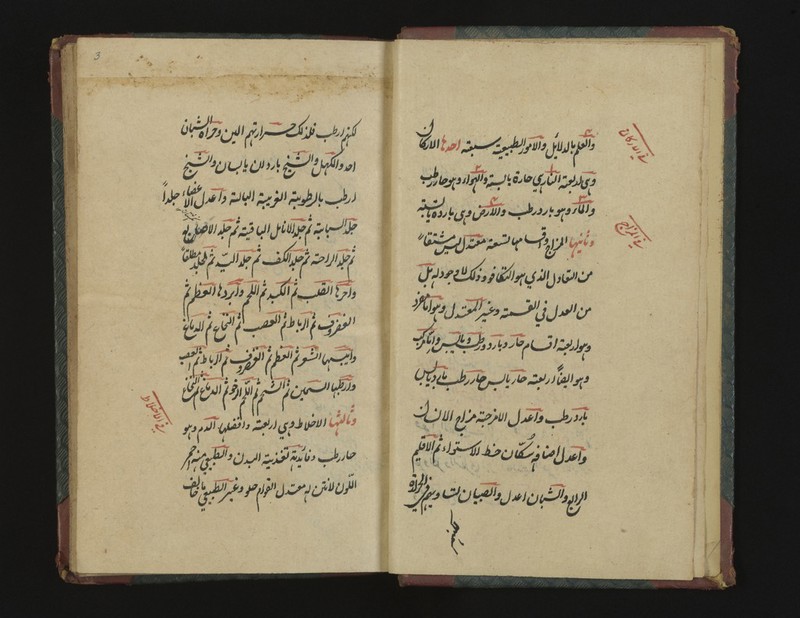 والعلم بالدلايل والامور الطبيعية سبعة احدها الاركان
في الاركان
وهي اربعة النار وهي حارة يابسة والهواء وهو حار رطب
والماء وهو بارد رطب والارض وهي باردة يابسة
وثانيها المزاج واقسامها تسعة معتدل ليس مشتقاً
في المزاج
من التعادل الذي هو التكافؤ وذلك لا وجود له بل
من العدل في القسمة وغير المعتدل وهو اما مفرد
وهو اربعة اقسام حار وبارد ورطب ويابس واما مركب
وهو ايضاً اربعة حار يابس حار رطب بارد يابس
بارد رطب واعدل الامزجة مزاج الانسان
واعدل اصنافه سكان خط الاستواء ثم الاقليم
الرابع والشبان اعدل والصبيان تساويهم في الحرارة
لكنهم ارطب فلذلك حرارتهم الين وحرارة الشبان
احد والكهل والشيخ باردان يابسان والشيخ
ارطب بالرطوبة الغريبة البالة واعدل الاعضاء جلداً
جلد السبابة ثم جلد الانامل الباقية ثم جلد الاصابع
ثم جلد الراحة ثم جلد الكف ثم جلد اليد ثم الجلد مطلقاً
واحرها القلب ثم الكبد ثم اللحم وابردها العظم ثم
الغضروف ثم الرباط ثم العصب ثم النخاع ثم الدماغ
وايبسها الشعر ثم العظم ثم الغضروف ثم الرباط ثم العصب
وارطبها السمين ثم الشحم ثم اللحم الرخو ثم الدماغ ثم النخاع
وثالثها الاخلاط وهي اربعة وافضلها الدم وهو
في الاخلاط
حار رطب وفائدته تغذية البدن والطبيعي منه احمر
اللون لا نتن له معتدل القوام حلو وغير الطبيعي ما يخالف
3